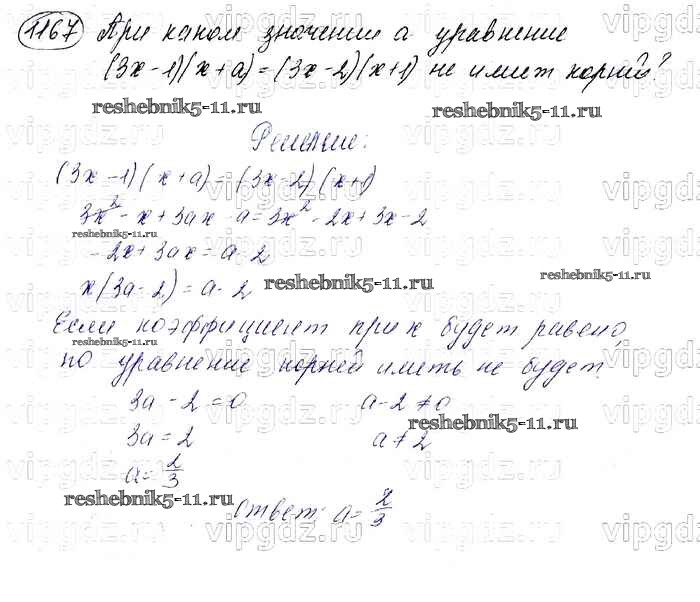 1167 При каком значении а уравнение
(3x-1)(x+a)=(3x-2)(x+1) не имеет корней?
reshebnik5-11.ru reshebnik5-11.ru
Решение:
(3x-1)(x+a)=(3x-2)(x+1)
3x²-x+3ax-a=3x²-2x+3x-2
reshebnik5-11.ru
-2x+3ax=a-2
x(3a-2)=a-2
reshebnik5-11.ru reshebnik5-11.ru
Если коэффициент при x будет равено,
reshebnik5-11.ru
то уравнение корней иметь не будет.
3a-2=0 a-2≠0
reshebnik5-11.ru
3a=2 a≠2
a=2/3
reshebnik5-11.ru
Ответ: a=2/3
vipgdz.ru